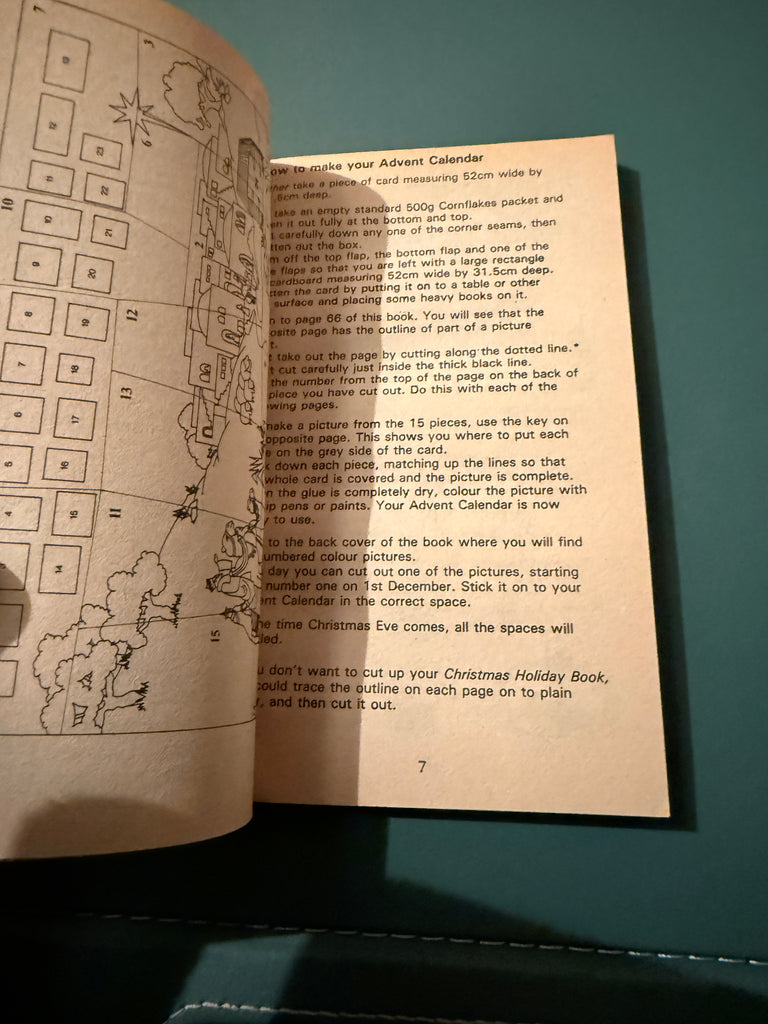 7
3
6
10
2
12
13
11
15
13
12
11
10
9
8
7
6
5
4
23
22
21
20
19
18
17
16
15
14
ow to make your Advent Calendar
her take a piece of card measuring 52cm wide by
.5cm deep.
take an empty standard 500g Cornflakes packet and
en it out fully at the bottom and top.
t carefully down any one of the corner seams, then
tten out the box.
m off the top flap, the bottom flap and one of the
e flaps so that you are left with a large rectangle
cardboard measuring 52cm wide by 31.5cm deep.
tten the card by putting it on to a table or other
surface and placing some heavy books on it.
n to page 66 of this book. You will see that the
osite page has the outline of part of a picture
t.
t take out the page by cutting along the dotted line.*
t cut carefully just inside the thick black line.
the number from the top of the page on the back of
piece you have cut out. Do this with each of the
wing pages.
nake a picture from the 15 pieces, use the key on
opposite page. This shows you where to put each
e on the grey side of the card.
k down each piece, matching up the lines so that
whole card is covered and the picture is complete.
n the glue is completely dry, colour the picture with
ip pens or paints. Your Advent Calendar is now
y to use.
to the back cover of the book where you will find
umbered colour pictures.
day you can cut out one of the pictures, starting
number one on 1st December. Stick it on to your
ent Calendar in the correct space.
he time Christmas Eve comes, all the spaces will
led.
u don't want to cut up your Christmas Holiday Book,
could trace the outline on each page on to plain
r, and then cut it out.
7